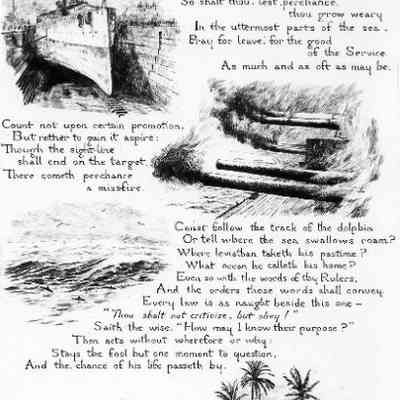 So shalt thou, lest perchance,
thou grow weary
In the uttermost parts of the sea,
Pray for leave, for the good
of the Service.
As much and as oft as may be.
Count not upon certain promotion,
But rather to gain it aspire;
Though the sight-line
shall end on the target,
There cometh perchance
a missfire.
Canst follow the track of the dolphin
Or tell where the sea swallows roam?
Where leviathan taketh his pastime?
What ocean he calleth his home?
Even so with the words of thy Rulers,
And the orders those words shall convey.
Every law is as naught beside this one –
"Thou shalt not criticise, but obey!"
Saith the wise. "How may I know their purpose?"
Then acts without wherefore or why.
Stays the fool but one moment to question,
And the chance of his life passeth by.